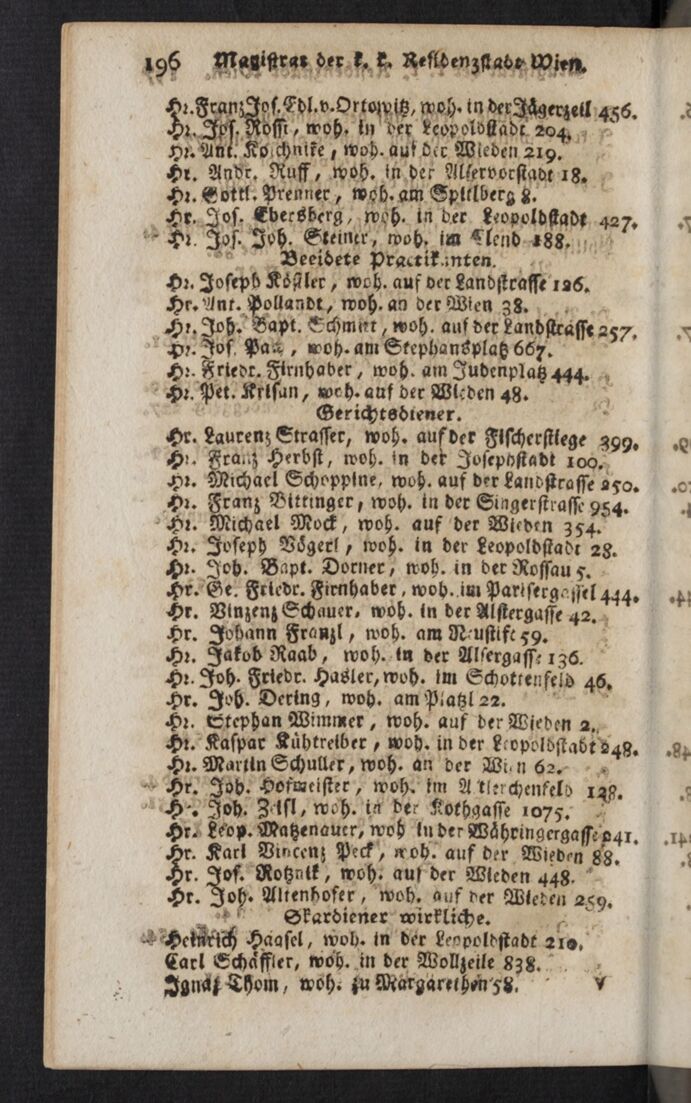 196 Magistrat der k. k. Residenzstadt Wien.
Hr. Franz Jos. Edl. v. Ortowitz, woh. in der Jägerzeil 456.
Hr. Jos. Rossi, woh. in der Leopoldstadt 204.
Hr. Ant. Koschnike, woh. auf der Wieden 219.
Hr. Andr. Ruff, woh. in der Alservorstadt 18.
Hr. Gottl. Prenner, woh. am Spitlberg 8.
Hr. Jos. Ebersberg, woh. in der Leopoldstadt 427.
Hr. Jos. Joh. Steiner, woh. im Elend 188.
Beeidete Practikanten.
Hr. Joseph Köstler, woh. auf der Landstrasse 126.
Hr. Ant. Pollandt, woh. an der Wien 38.
Hr. Joh. Bapt. Schmitt, woh. auf der Landstrasse 257.
Hr. Jos. woh. am Stephansplatz 667.
Hr. Friedr. Firnhaber, woh. am Judenplatz 444.
Hr. Pet. Krisan, woh. auf der Wieden 48.
Gerichtsdiener.
Hr. Laurenz Strasser, woh. auf der Fischerstiege 399.
Hr. Franz Herbst, woh. in der Josephstadt 100.
Hr. Michael Schoppine, woh. auf der Landstrasse 250.
Hr. Franz Bittinger, woh. in der Singerstrasse 954.
Hr. Michael Mock, woh. auf der Wieden 354.
Hr. Joseph Vögerl, woh. in der Leopoldstadt 28.
Hr. Joh. Bapt. Dorner, woh. in der Rossau 5.
Hr. Ge. Friedr. Firnhaber, woh. im Parisergassel 444.
Hr. Vinzenz Schauer, woh. in der Alstergasse 42.
Hr. Johann Franzl, woh. am Neustift 59.
Hr. Jakob Raab, woh. in der Alsergasse 136.
Hr. Joh. Friedr. Hasler, woh. im Schottenfeld 46.
Hr. Joh. Dering, woh. am Platzl 22.
Hr. Stephan Wimmer, woh. auf der Wieden 2.
Hr. Kaspar Kühtreiber, woh. in der Leopoldstadt 248.
Hr. Martin Schuller, woh. an der Wien 62.
Hr. Joh. Hofmeister, woh. im Altlerchenfeld 128.
Hr. Joh. Zeisl, woh. in der Kothgasse 1075.
Hr. Leop. Matzenauer, woh in der Währingergasse 241.
Hr. Karl Vincenz Peck, woh. auf der Wieden 88.
Hr. Jos. Rotznik, woh. auf der Wieden 448.
Hr. Joh. Altenhofer, woh. auf der Wieden 259.
Skardiener wirkliche.
Heinrich Haasel, woh. in der Leopoldstadt 210.
Carl Schäffler, woh. in der Wollzeile 838.
Ignaz Thom, woh. zu Margarethen 58.